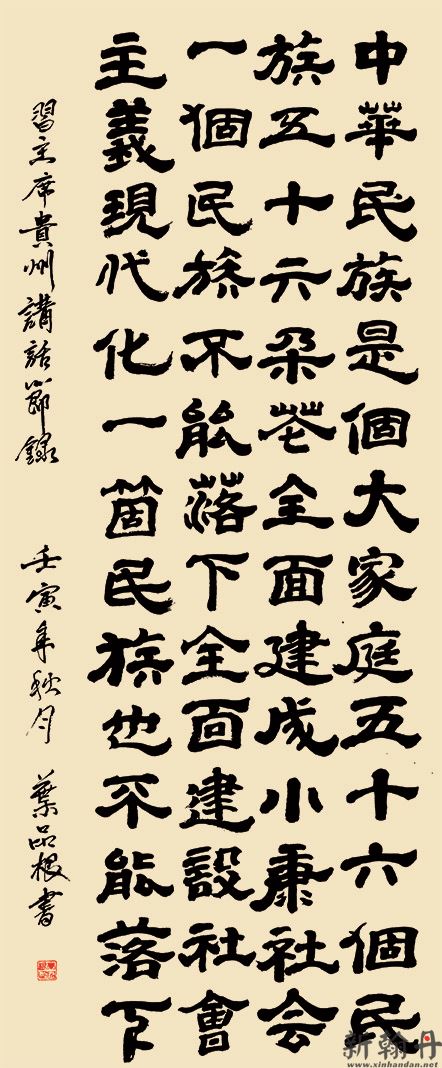 中華民族是個大家庭五十六個民
族五十六朵花全面建成小康社会
一個民族不能落下全面建設社會
主義現代化一箇民族也不能落下
習主席貴州講話節錄 壬寅年秋月 葉品根書
新翰丹
www.xinhandan.net